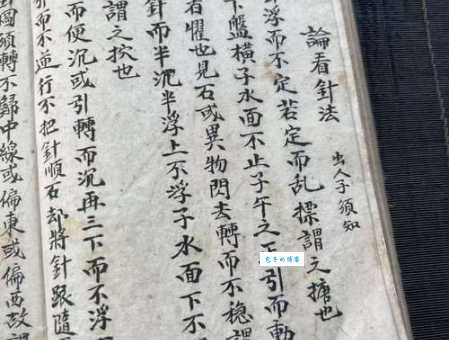 論看針法 出人子須知
浮而不定若定而乱摽謂之搪也
下盤橫子水面不止子午之引而動
者懼也見石或異物閃去轉而不穩謂
針而半沉半浮上不浮子水面下不
謂之也
而便沉或引轉而沉再三下而不浮
而不逆行不把針順石却將針跟隨
須轉不歸中線或偏東或偏西故謂